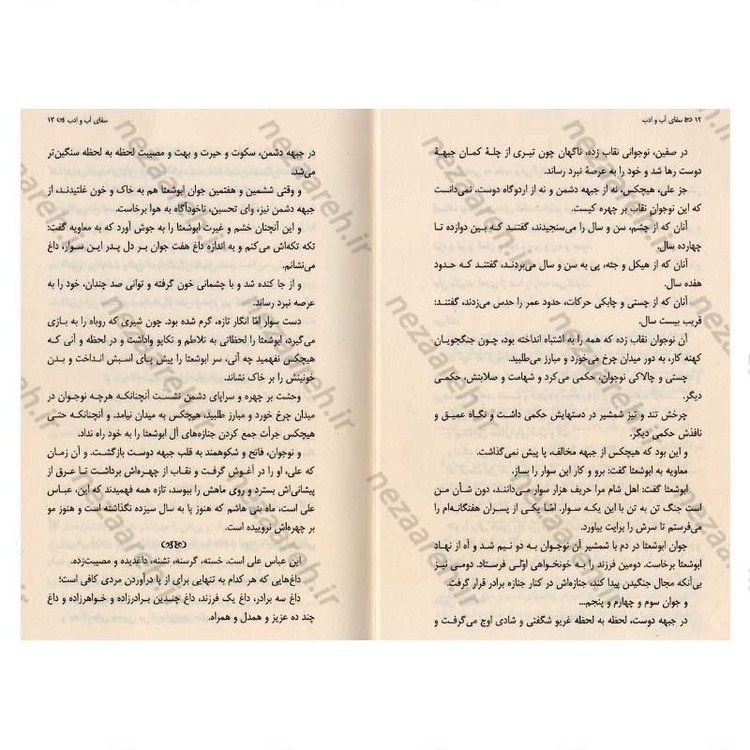 ۱۲ سقای آب و ادب
در صفین، نوجوانی نقاب زده، ناگهان چون تیری از چلهٔ کمان جبههٔ
دوست رها شد و خود را به عرصهٔ نبرد رساند.
جز علی، هیچکس، نه از جبهه دشمن و نه از اردوگاه دوست، نمی‌دانست
که این نوجوان نقاب بر چهره کیست.
آنان که از چشم، سن و سال را می‌سنجیدند، گفتند که بین دوازده تا
چهارده سال.
آنان که از هیکل و جثه، پی به سن و سال می‌بردند، گفتند که حدود
هفده سال.
آنان که از چستی و چابکی حرکات، حدود عمر را حدس می‌زدند، گفتند:
قریب بیست سال.
آن نوجوان نقاب زده که همه را به اشتباه انداخته بود، چون جنگجویان
کهنه کار، به دور میدان چرخ می‌خورد و مبارز می‌طلبید.
چستی و چالاکی نوجوان، حکمی می‌کرد و شهامت و صلابتش، حکمی
دیگر.
چرخش تند و تیز شمشیر در دستهایش حکمی داشت و نگاه عمیق و
نافذش حکمی دیگر.
و این بود که هیچکس از جبهه مخالف، پا پیش نمی‌گذاشت.
معاویه به ابوشعثا گفت: برو و کار این سوار را بساز.
ابوشعثا گفت: اهل شام مرا حریف هزار سوار می‌دانند، دون شأن من
است جنگ تن به تن با این یکه سوار. امّا یکی از پسران هفتگانه‌ام را
می‌فرستم تا سرش را برایت بیاورد.
جوان ابوشعثا در دم با شمشیر آن نوجوان به دو نیم شد و آه از نهاد
ابوشعثا برخاست. دومین فرزند را به خونخواهی اوّلی فرستاد. دومی نیز
بی‌آنکه مجال جنگیدن پیدا کند، جنازه‌اش در کنار جنازه برادر قرار گرفت.
و جوان سوم و چهارم و پنجم...
در جبهه دوست، لحظه به لحظه غریو شگفتی و شادی اوج می‌گرفت و
سقای آب و ادب ۱۳
در جبهه دشمن، سکوت و حیرت و بهت و مصیبت لحظه به لحظه سنگین‌تر
می‌شد.
و وقتی ششمین و هفتمین جوان ابوشعثا هم به خاک و خون غلتیدند، از
جبهه دشمن نیز، وای تحسین، ناخودآگاه به هوا برخاست.
و این آنچنان خشم و غیرت ابوشعثا را به جوش آورد که به معاویه گفت:
تکه تکه‌اش می‌کنم و به اندازه داغ هفت جوان بر دل پدر این سوار، داغ
می‌نشانم.
و از جا کنده شد و با چشمانی خون گرفته و توانی صد چندان، خود را به
عرصه نبرد رساند.
دست سوار امّا انگار تازه، گرم شده بود. چون شیری که روباه را به بازی
می‌گیرد، ابوشعثا را لحظاتی به تلاطم و تکاپو واداشت و در لحظه و آنی که
هیچکس نفهمید چه آنی، سر ابوشعثا را پیش پای اسبش انداخت و بدن
خونینش را بر خاک نشاند.
وحشت بر چهره و سراپای دشمن نشست آنچنانکه هرچه نوجوان در
میدان چرخ خورد و مبارز طلبید، هیچکس به میدان نیامد. و آنچنانکه حتی
هیچکس جرأت جمع کردن جنازه‌های آل ابوشعثا را به خود راه نداد.
و نوجوان، فاتح و شکوهمند به قلب جبهه دوست بازگشت. و آن زمان
که علی، او را در آغوش گرفت و نقاب از چهره‌اش برداشت تا عرق از
پیشانی‌اش بسترد و روی ماهش را ببوسد، تازه همه فهمیدند که این، عباس
علی است، ماه بنی هاشم که هنوز پا به سال سیزده نگذاشته است و هنوز مو
بر چهره‌اش نروییده است.
این عباس علی است. خسته، گرسنه، تشنه، داغدیده و مصیبت‌زده.
داغ‌هایی که هر کدام به تنهایی برای از پا درآوردن مردی کافی است؛
داغ سه برادر، داغ یک فرزند، داغ چندین برادرزاده و خواهرزاده و داغ
چند ده عزیز و همدل و همراه.
nezaareh.ir